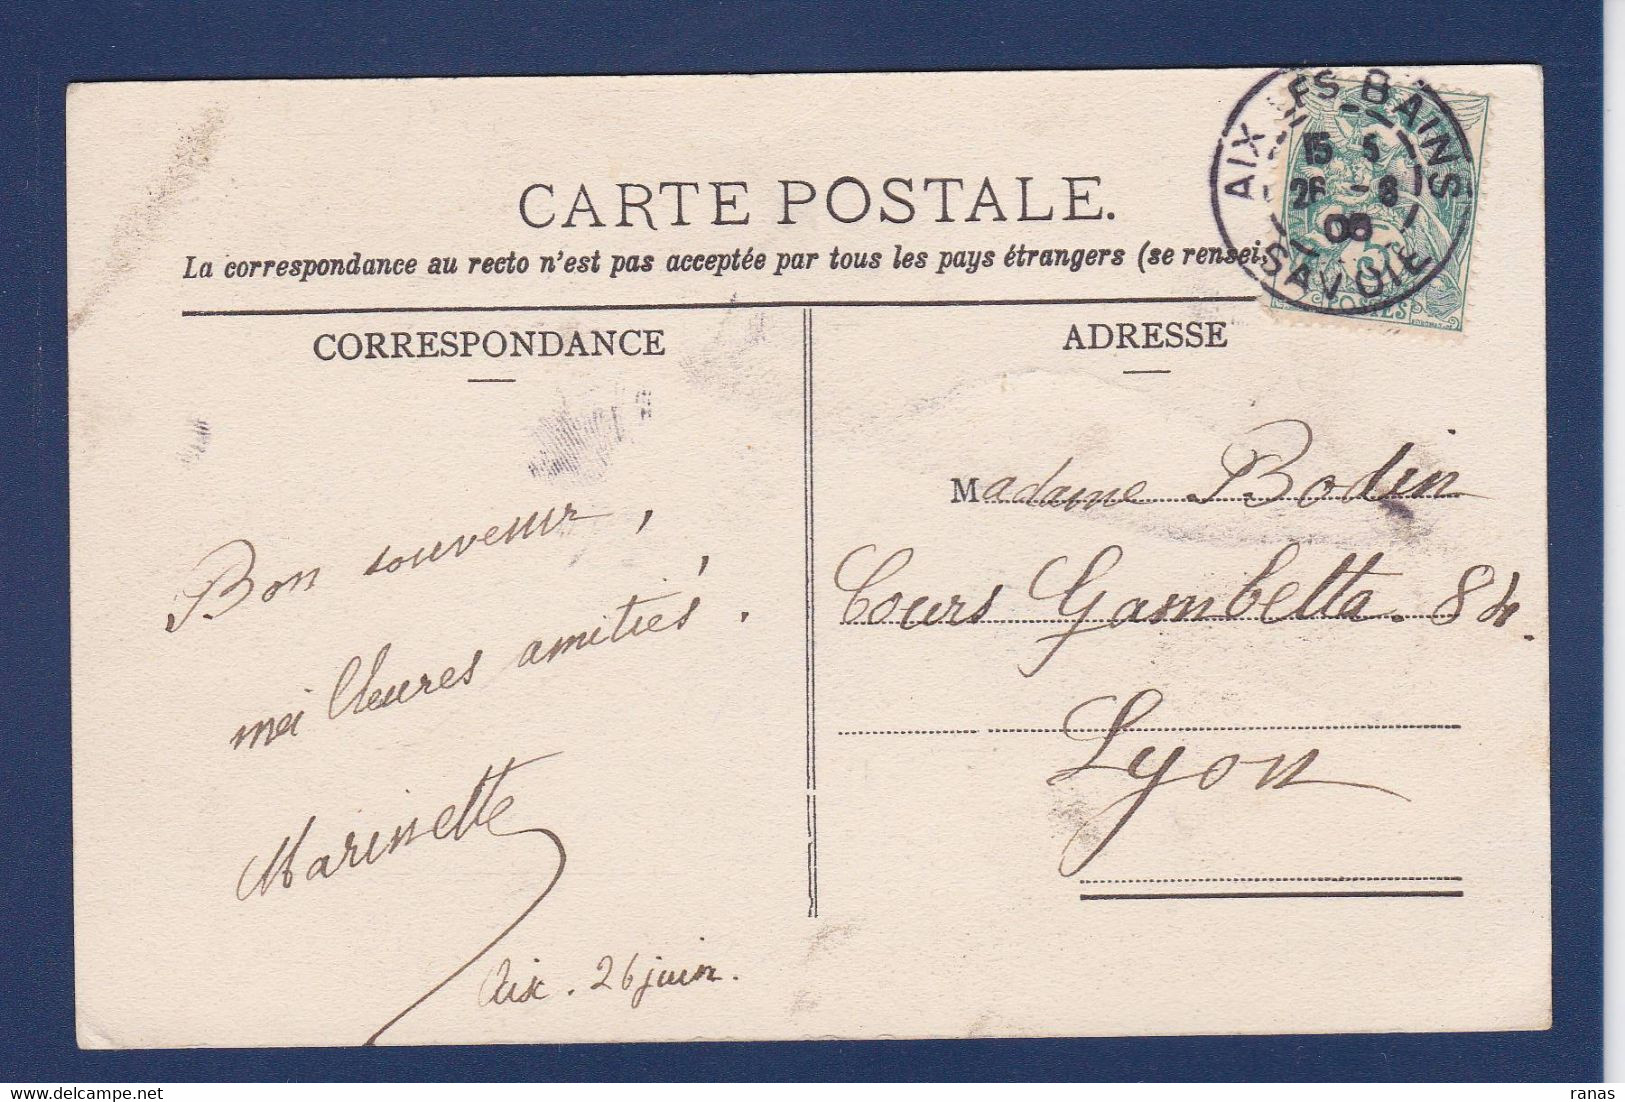 CARTE POSTALE.
La correspondance au recto n'est pas acceptée par tous les pays étrangers (se rensei
CORRESPONDANCE
ADRESSE
AIX LES-BAINS
15 5
26 -6
08
SAVOIE
POSTES
Bon souvenir,
meilleures amitiés.
Marinette
Aix. 26 juin.
Madame Bodin
Cours Gambetta. 84.
Lyon
ranas